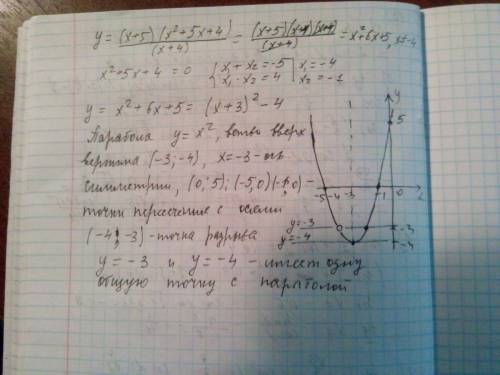 y = (x+5)(x²+5x+4)/(x+4) = (x+5)(x+1)(x+4)/(x+4) = x²+6x+5, x≠-4
x²+5x+4 = 0 { x₁+x₂=-5 x₁·x₂=4 | x₁=-4 x₂=-1
y = x²+6x+5 = (x+3)²-4
Парабола y=x², ветви вверх
вершина (-3;-4), x=-3-ось
симметрии, (0;5); (-5;0) (-1;0)-
точки пересечения с осями
(-4;-3)-точка разрыва
y=-3 и y=-4 - имеет одну
общую точку с параболой
y
5
-5 -4 -3 -1 0
y=-3 -3
y=-4 -4